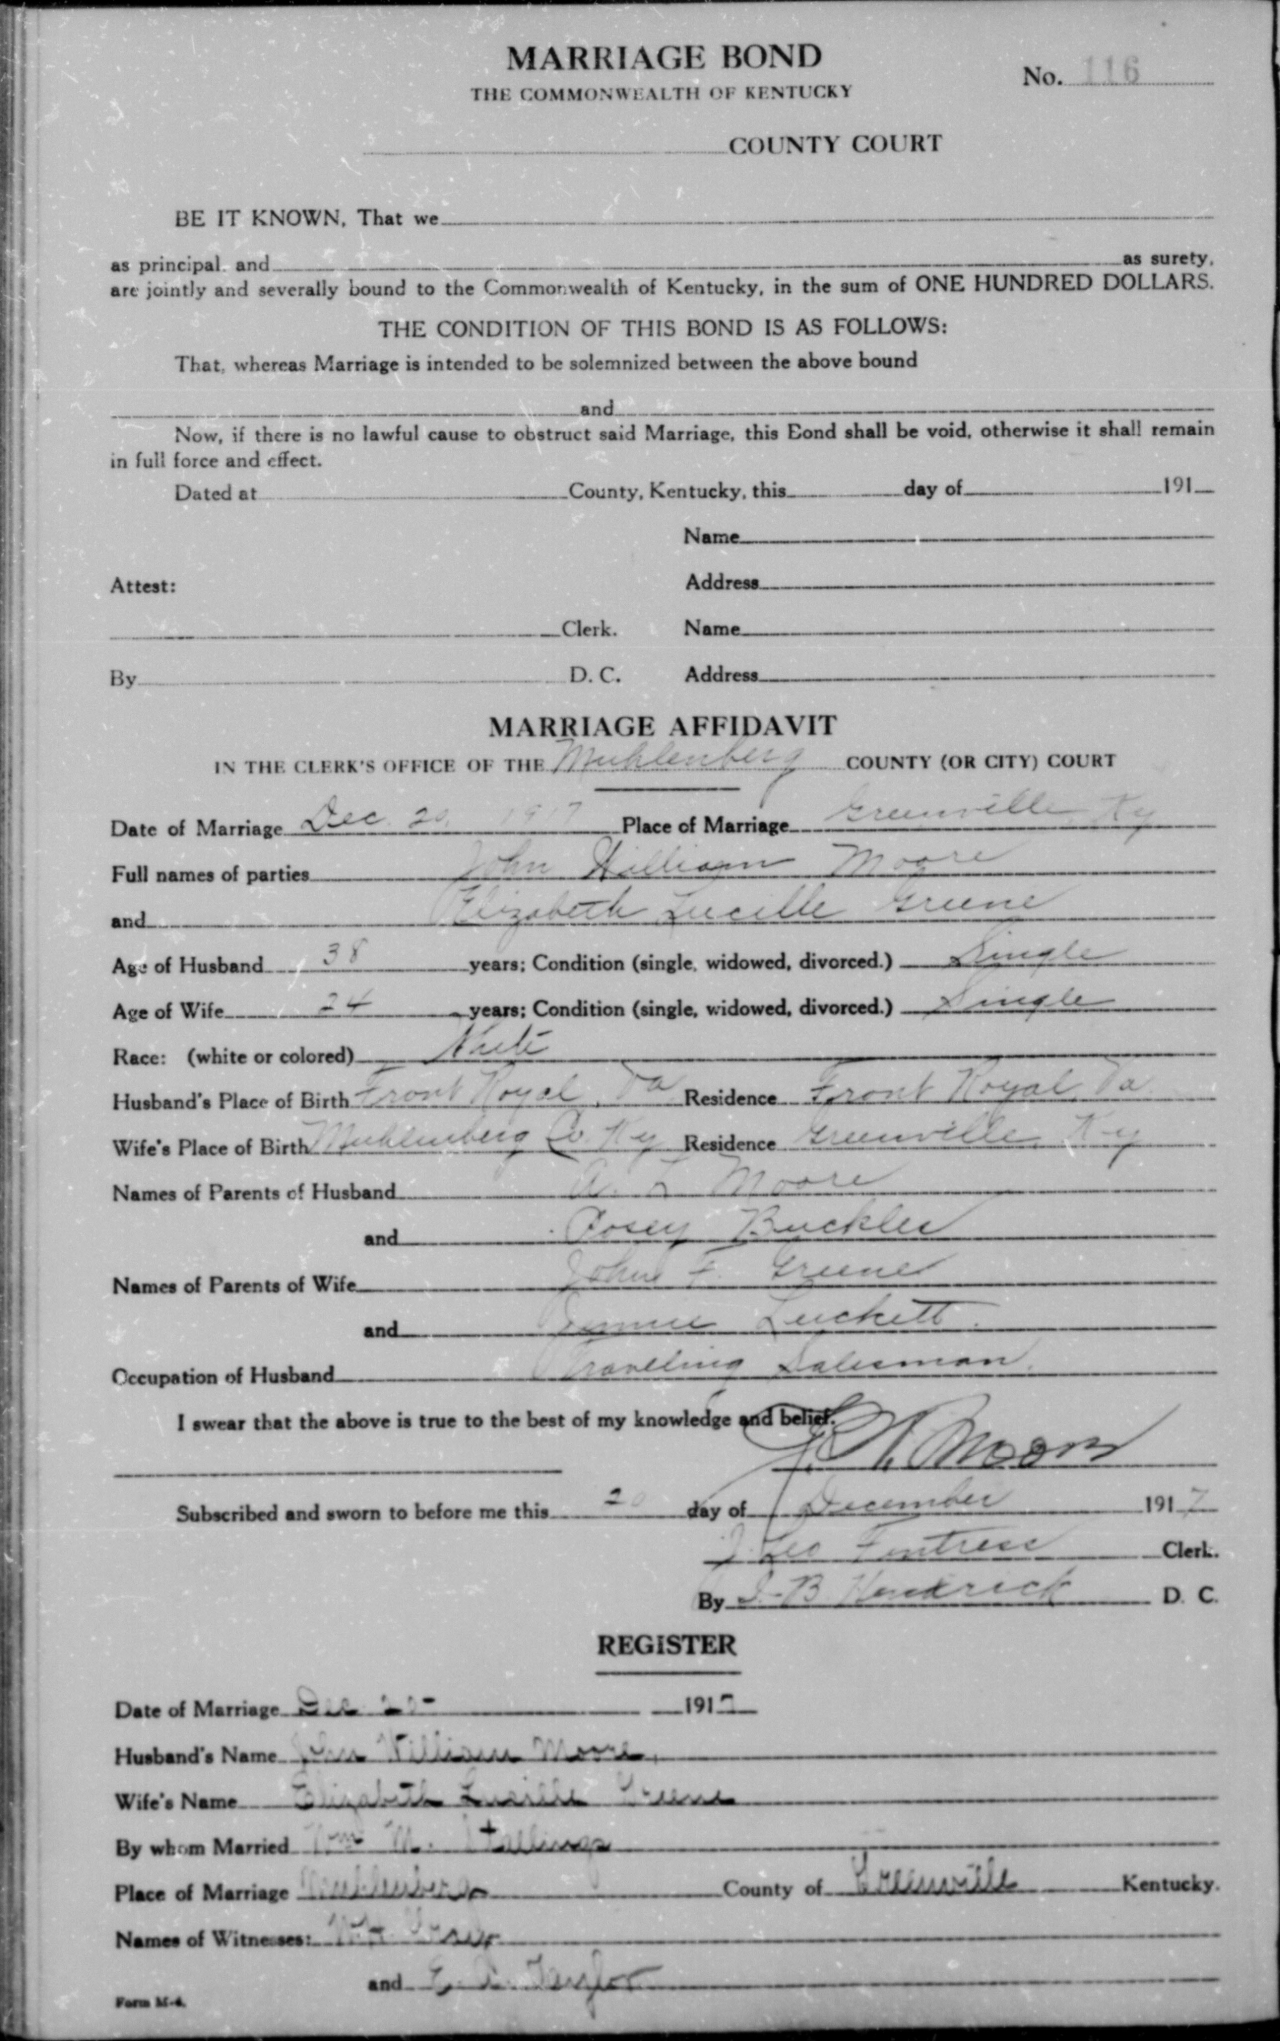 MARRIAGE BOND
No. 116
THE COMMONWEALTH OF KENTUCKY
COUNTY COURT
BE IT KNOWN, That we
as principal, and as surety,
are jointly and severally bound to the Commonwealth of Kentucky, in the sum of ONE HUNDRED DOLLARS.
THE CONDITION OF THIS BOND IS AS FOLLOWS:
That, whereas Marriage is intended to be solemnized between the above bound
and
Now, if there is no lawful cause to obstruct said Marriage, this Bond shall be void, otherwise it shall remain
in full force and effect.
Dated at County, Kentucky, this day of 191
Name
Attest: Address
Clerk. Name
By D. C. Address
MARRIAGE AFFIDAVIT
IN THE CLERK'S OFFICE OF THE Muhlenberg COUNTY (OR CITY) COURT
Date of Marriage Dec. 20, 1917 Place of Marriage Greenville, Ky
Full names of parties John William Moore
and Elizabeth Lucille Greene
Age of Husband 38 years; Condition (single, widowed, divorced.) Single
Age of Wife 24 years; Condition (single, widowed, divorced.) Single
Race: (white or colored) White
Husband's Place of Birth Front Royal, Va Residence Front Royal, Va.
Wife's Place of Birth Muhlenberg Co. Ky Residence Greenville, Ky
Names of Parents of Husband A. L. Moore
and Posey Buckles
Names of Parents of Wife John F. Greene
and Jennie Luckett.
Occupation of Husband Traveling Salesman.
I swear that the above is true to the best of my knowledge and belief.
J. W. Moore
Subscribed and sworn to before me this 20 day of December 1917
J. Leo Fentress Clerk.
By J. B Hendrick D. C.
REGISTER
Date of Marriage Dec 20- 1917
Husband's Name John William Moore,
Wife's Name Elizabeth Lucille Greene
By whom Married Wm M. Stallings
Place of Marriage Muhlenberg County of Greenville Kentucky.
Names of Witnesses: W.H.
and E. A. Taylor
Form M-4.